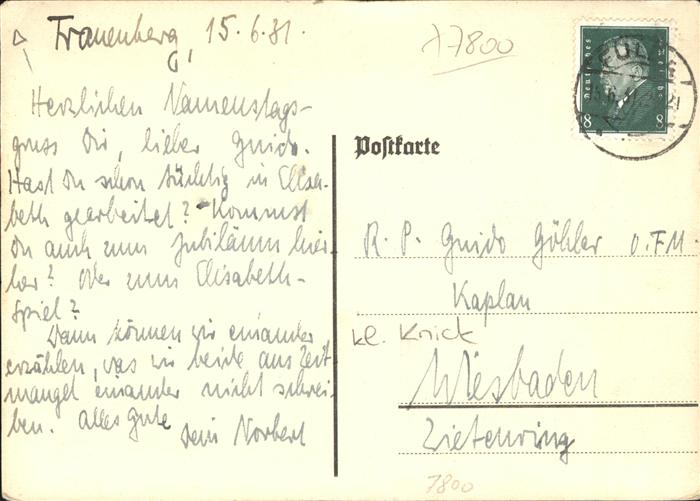 Frauenberg, 15.6.31.
Herzlichen Namenstags-
gruss Dir, lieber Guido.
Hast Du schon tüchtig in Elisa-
beth gearbeitet? Kommst
Du auch zum Jubiläum hier-
her? Oder zum Elisabeth-
spiel?
Dann können wir einander
erzählen, was wir beide aus Zeit
mangel einander nicht schrei-
ben. Alles Gute
Dein Norbert
7800
Deutsches Reich
8 8
Postkarte
R. P. Guido Göhler O.F.M.
Kaplan
kl. Knick
Wiesbaden
Zietenring
7800